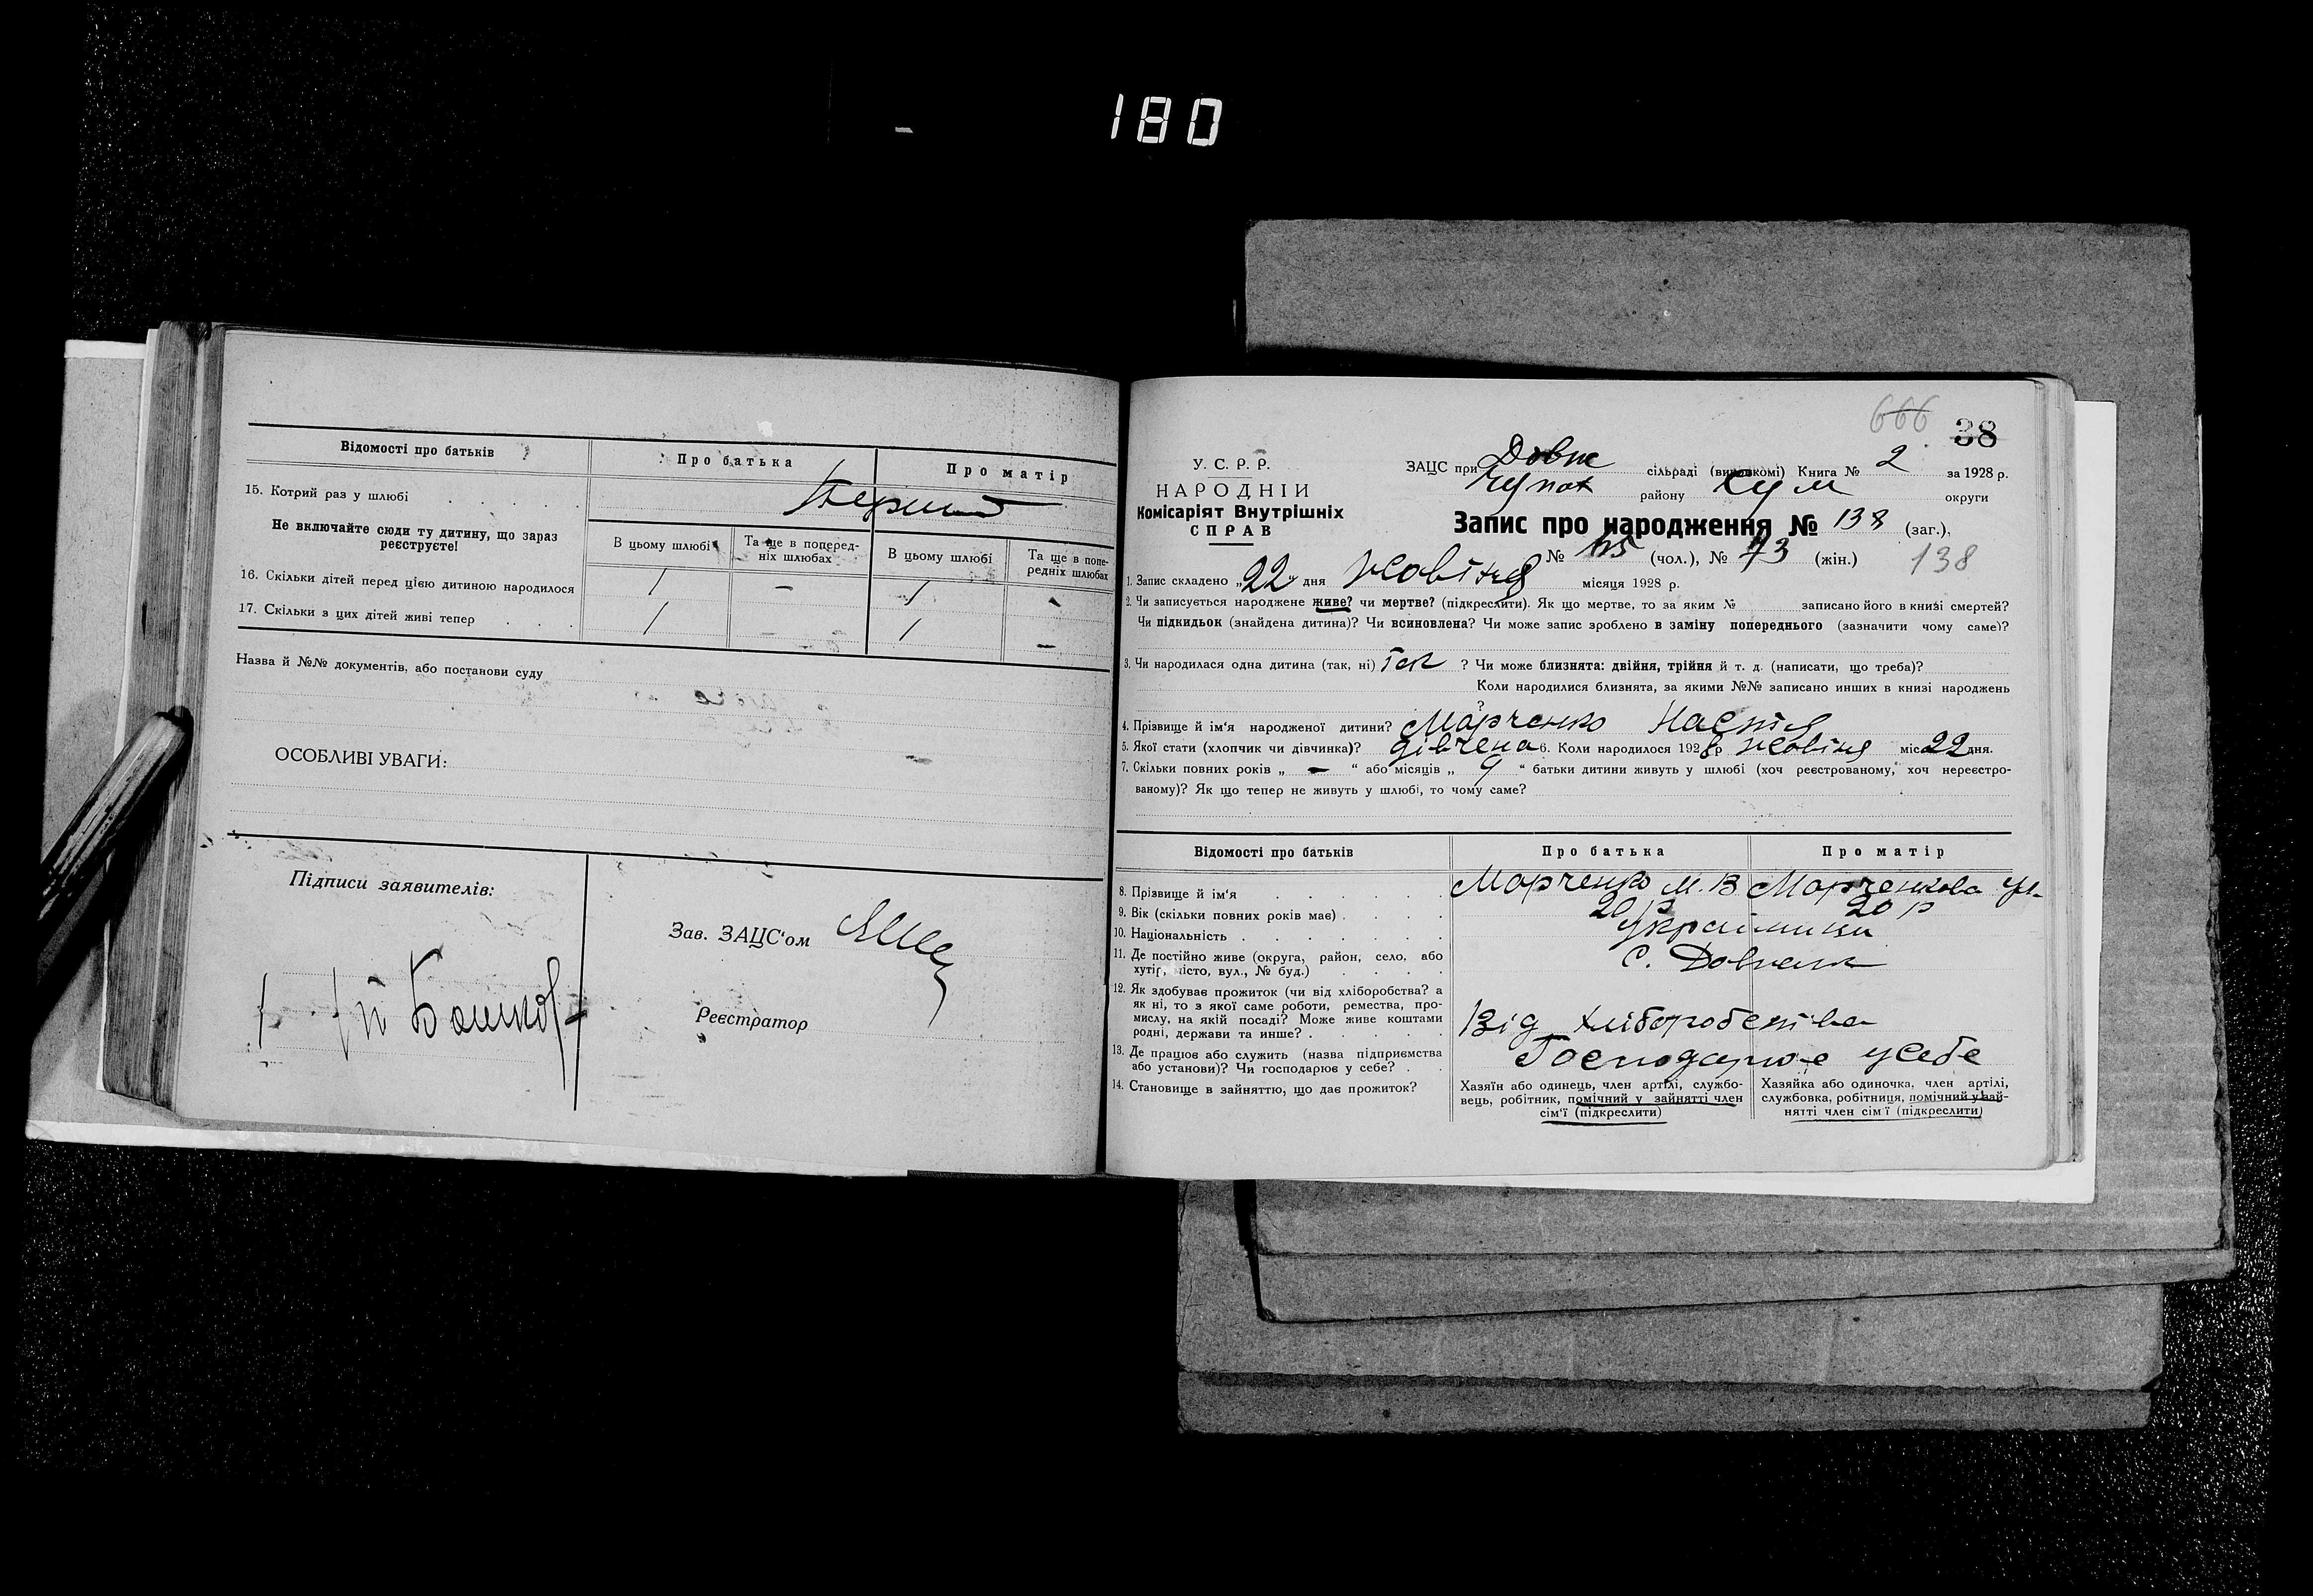 180
Відомості про батьків
Про батька
Про матір
15. Котрий раз у шлюбі
Не включайте сюди ту дитину, що зараз реєструєте!
В цьому шлюбі
Та ще в поперед-
ніх шлюбах
В цьому шлюбі
Та ще в попе-
редніх шлюбах
16. Скільки дітей перед цією дитиною народилося 1 — 1 -
17. Скільки з цих дітей живі тепер 1 — 1 —
Назва й №№ документів, або постанови суду
ОСОБЛИВІ УВАГИ:
Підписи заявителів:
Зав. ЗАЦС'ом
Реєстратор
666 38
У. С. Р. Р.
НАРОДНІЙ
Комісаріят Внутрішніх
СПРАВ
ЗАЦС при Довж сільраді (виконкомі) Книга № 2 за 1928 р.
району Сум округи
Запис про народження № 138 (заг.),
№ 65 (чол.), № 73 (жін.) 138
1. Запис складено „22" дня Жовтня місяця 1928 р.
2. Чи записується народжене живе? чи мертве? (підкреслити). Як що мертве, то за яким № записано його в книзі смертей?
Чи підкидьок (знайдена дитина)? Чи всиновлена? Чи може запис зроблено в заміну попереднього (зазначити чому саме)?
3. Чи народилася одна дитина (так, ні) Так ? Чи може близнята: двійня, трійня й т. д. (написати, що треба)?
Коли народилися близнята, за якими №№ записано инших в книзі народжень
?
4. Прізвище й ім'я народженої дитини? Марченко Настя
5. Якої стати (хлопчик чи дівчинка)? дівчена 6. Коли народилося 1928 р жовтня міс 22 дня.
7. Скільки повних років „ — " або місяців „ 9 " батьки дитини живуть у шлюбі (хоч реєстрованому, хоч нереєстро-
ваному)? Як що тепер не живуть у шлюбі, то чому саме?
Відомості про батьків
Про батька
Про матір
8. Прізвище й ім'я Марченко М. В Марченкова
9. Вік (скільки повних років має) 20 р 20 р
10. Національність Українци
11. Де постійно живе (округа, район, село, або
хутір, місто, вул., № буд.) С.
12. Як здобуває прожиток (чи від хліборобства? а
як ні, то з якої саме роботи, ремества, про-
мислу, на якій посаді? Може живе коштами
родні, держави та инше? Від хліборобства
13. Де працює або служить (назва підприємства
або установи)? Чи господарює у себе? Господарює усебе
14. Становище в зайняттю, що дає прожиток?
Хазяїн або одинець, член артілі, службо-
вець, робітник, помічний у зайнятті член
сім'ї (підкреслити)
Хазяйка або одиночка, член артілі,
службовка, робітниця, помічний у зай-
нятті член сім'ї (підкреслити)